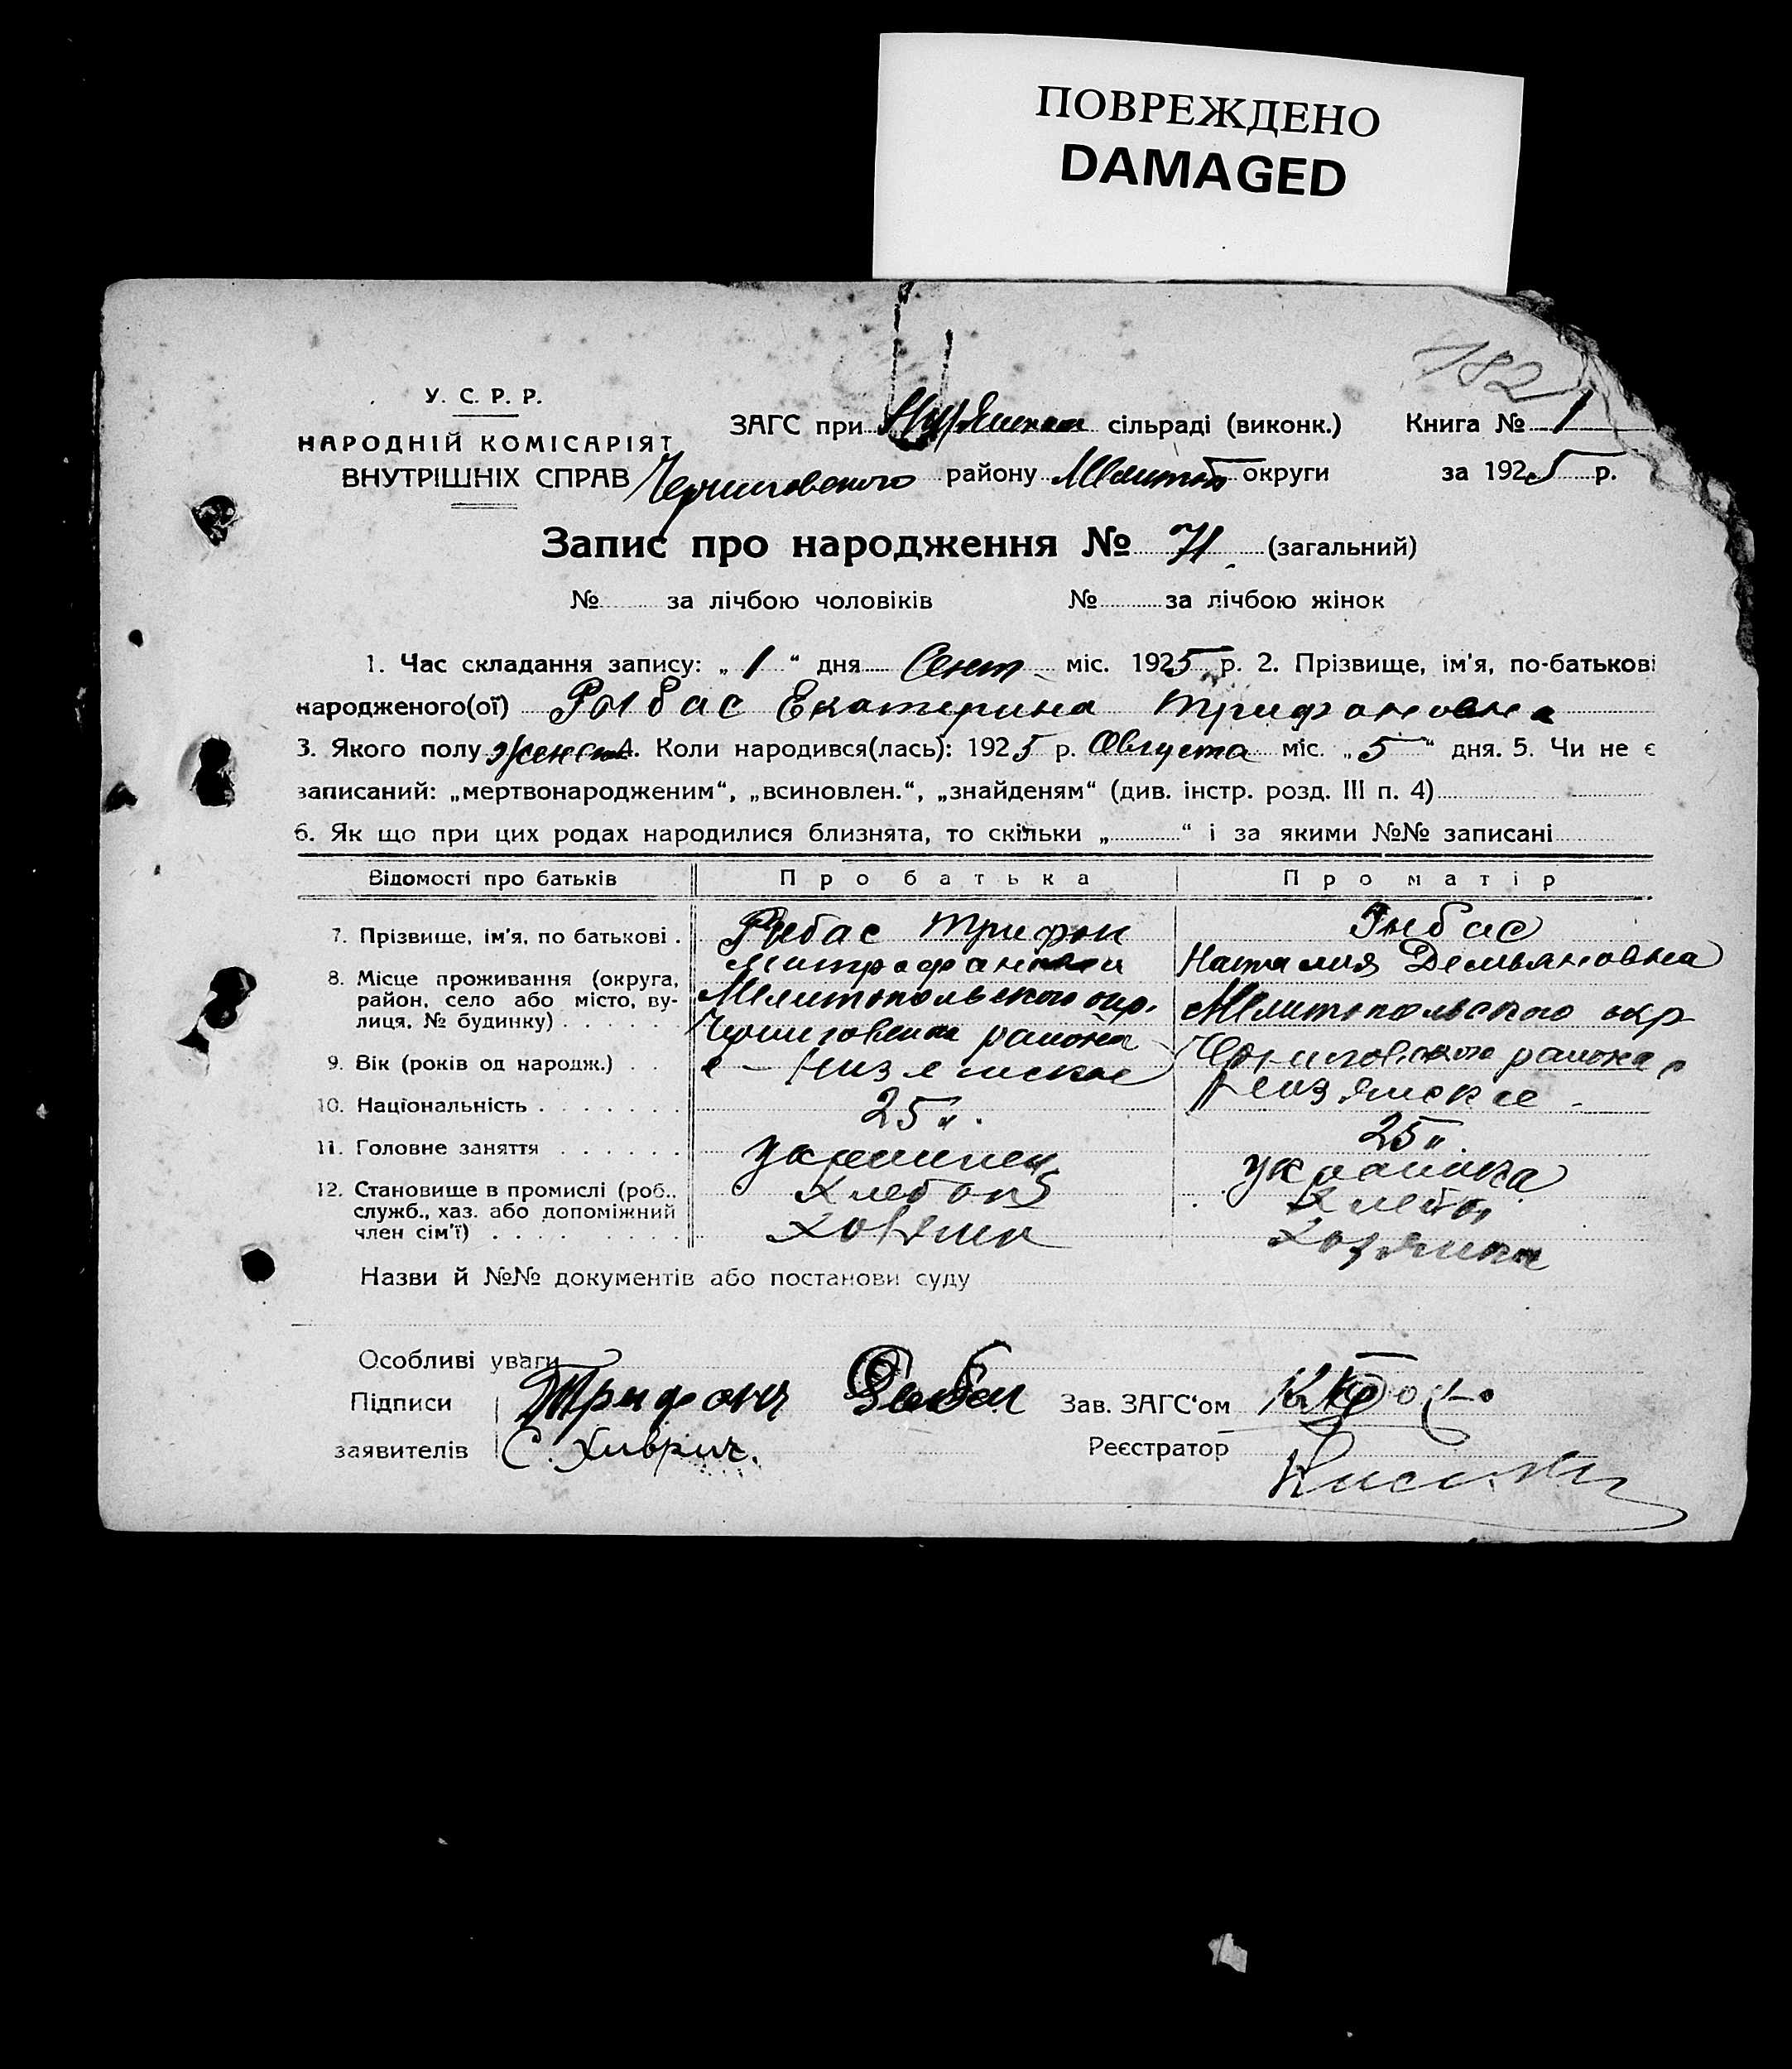 ПОВРЕЖДЕНО
DAMAGED
182
У. С. Р. Р.
НАРОДНІЙ КОМІСАРІЯТ
ВНУТРІШНІХ СПРАВ
ЗАГС при сільраді (виконк.) Книга № 1
Черниговского району Мелитоп округи за 1925 р.
Запис про народження № 71 (загальний)
№ за лічбою чоловіків № за лічбою жінок
1. Час складання запису: „ 1 “ дня Сент міс. 1925 р. 2. Прізвище, ім'я, по-батькові
народженого(ої) Рыбас Екатерина Трифоновна
3. Якого полу женск 4. Коли народився(лась): 1925 р. Августа міс. „ 5 “ дня. 5. Чи не є
записаний: „мертвонародженим“, „всиновлен.“, „знайденям“ (див. інстр. розд. III п. 4)
6. Як що при цих родах народилися близнята, то скільки „ “ і за якими №№ записані
Відомості про батьків Про батька Про матір
7. Прізвище, ім'я, по батькові . Рыбас Трифон Рыбас
Наталия Демьяновна
8. Місце проживання (округа, район, село або місто, вулиця, № будинку) . . . . . Мелитопольского окр. Мелитопольского окр
Черниговского района Черниговского района с
с - Низянское Низянское -
9. Вік (років од народж.) . . 25 л. 25 л.
10. Національність . . . . . . . украинец украинка
11. Головне заняття . . . . . . Хлебоп Хлебоп
12. Становище в промислі (роб., служб., хаз. або допоміжний член сім'ї) . . . . . . . . Хозяин Хозяйка
Назви й №№ документів або постанови суду
Особливі уваги
Підписи Трифон Рыбас Зав. ЗАГС'ом
заявителів С. Реєстратор